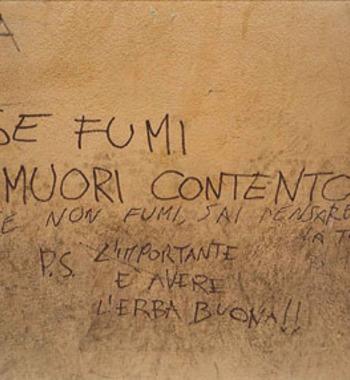 A
SE FUMI
MUORI CONTENTO
E NON FUMI, SAI PENSARE
P.S. L'IMPORTANTE
E AVERE
L'ERBA BUONA!!